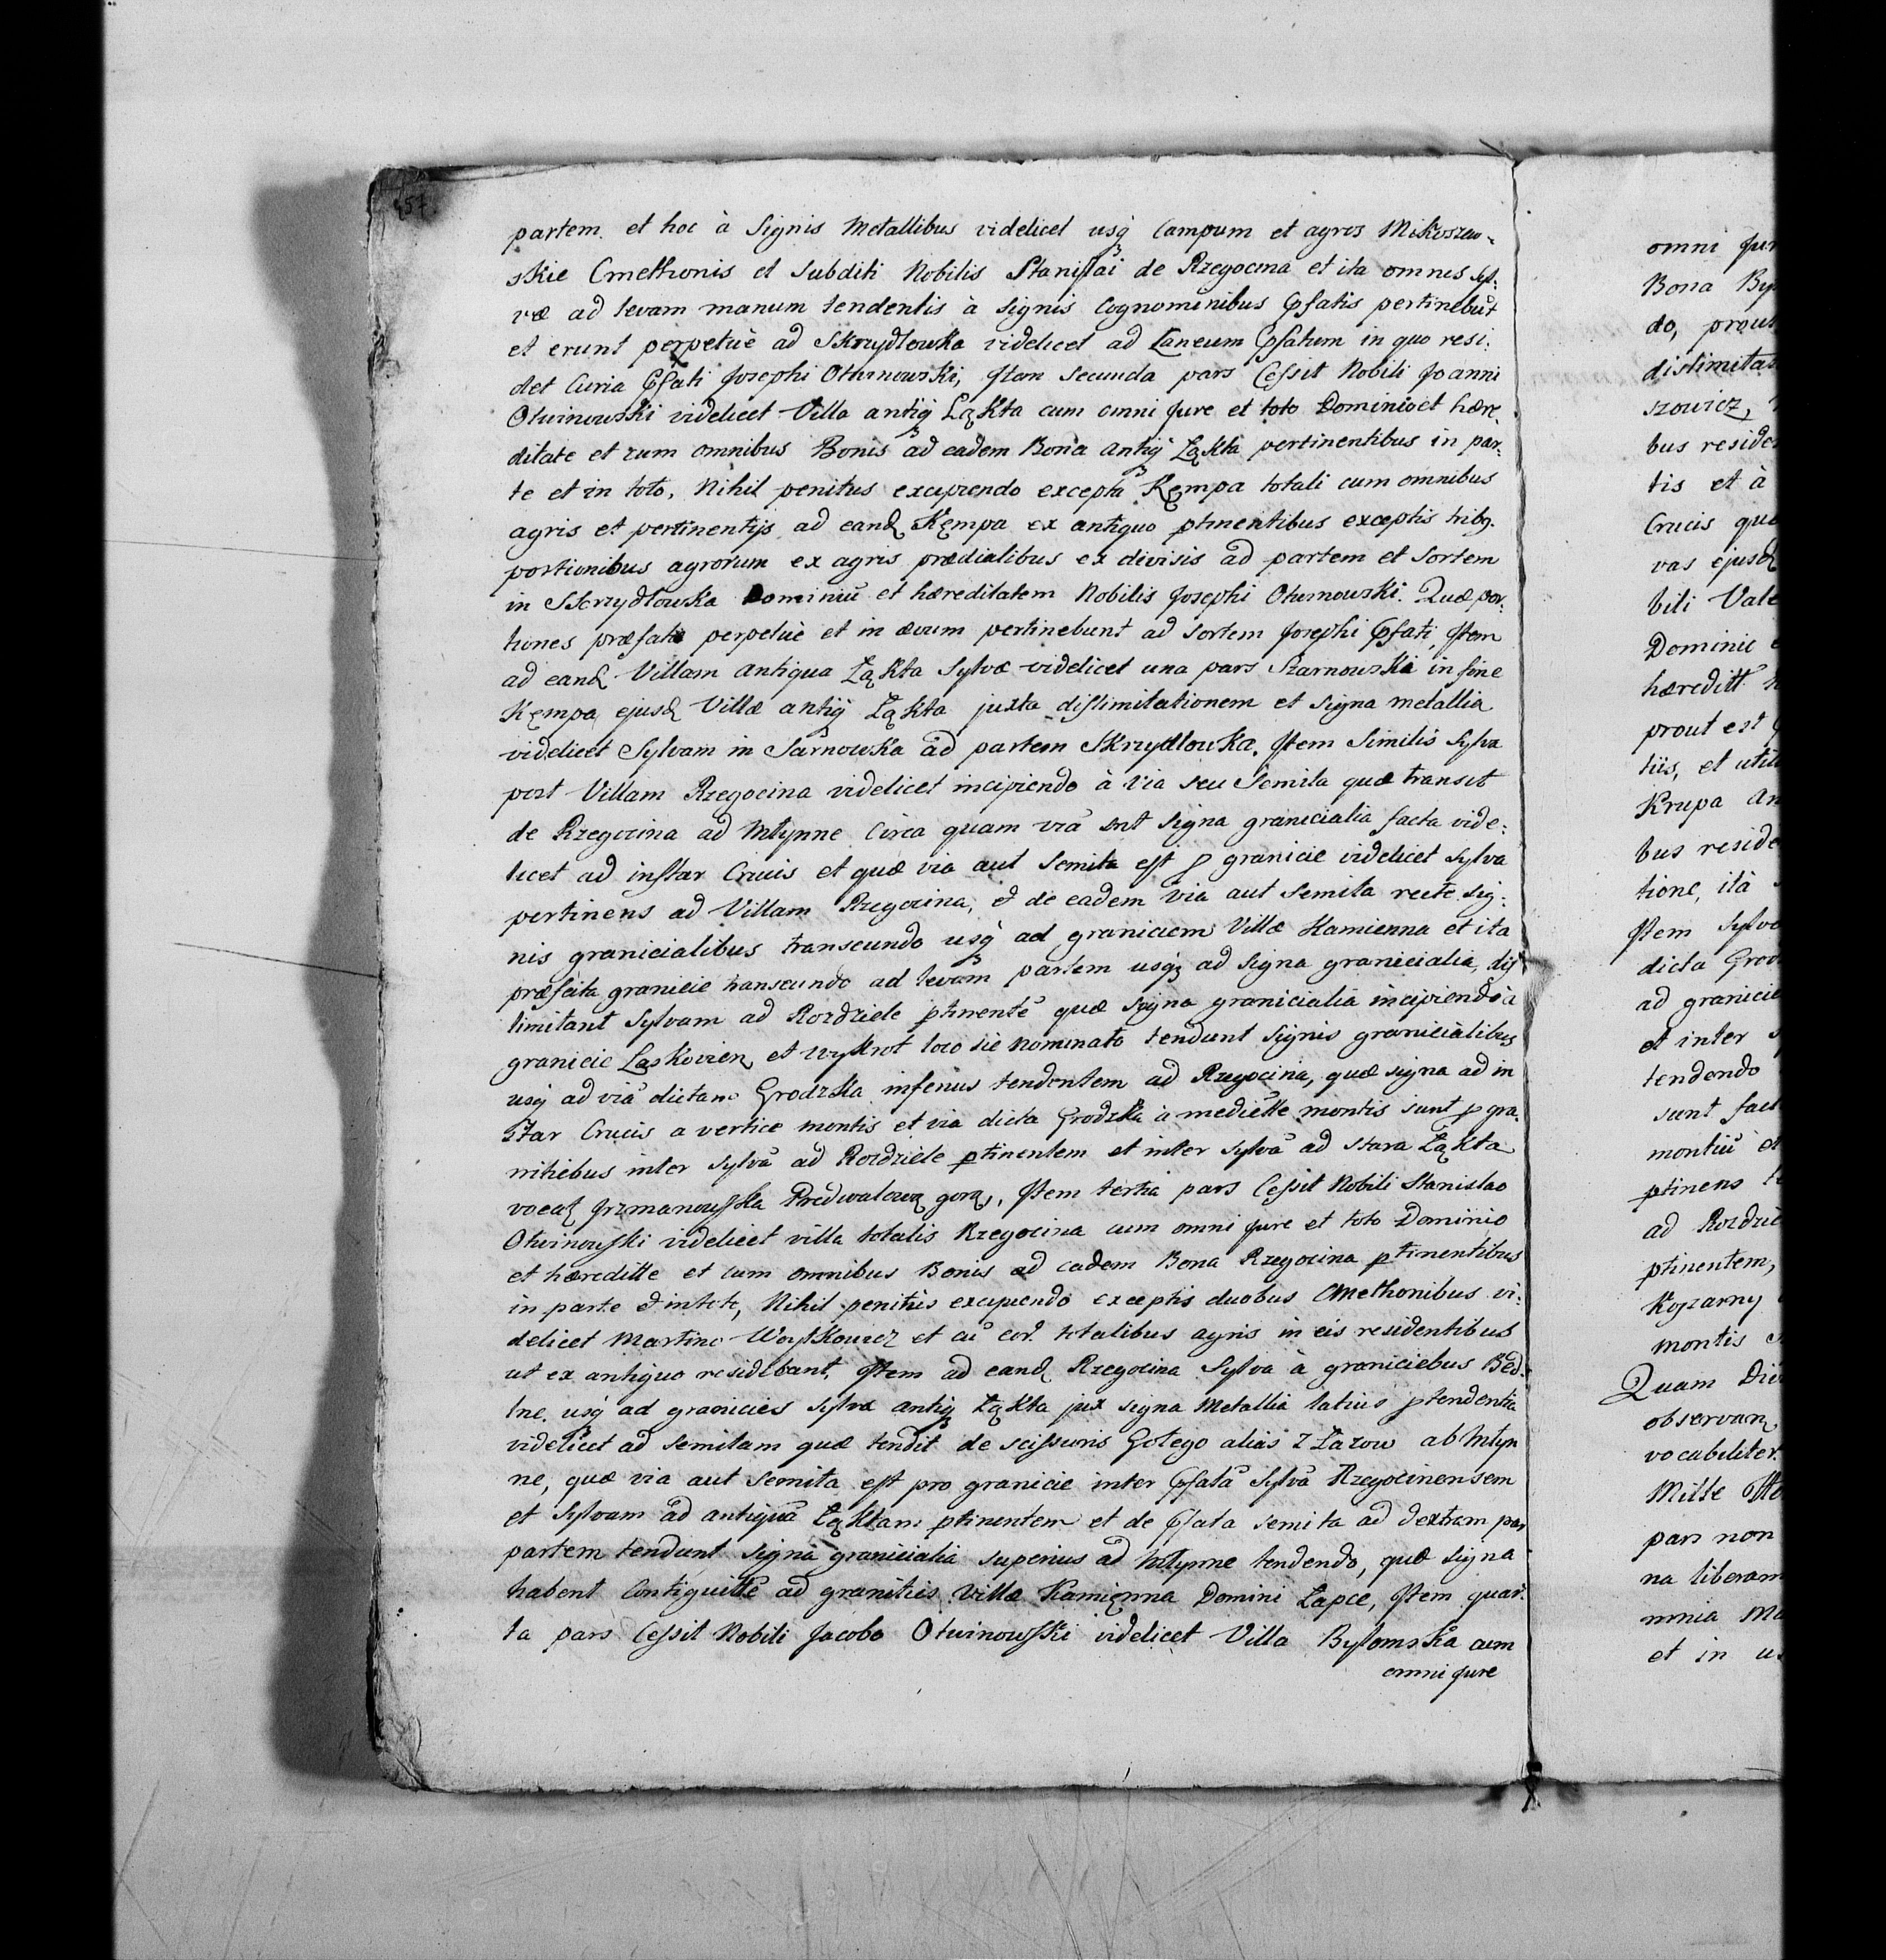 57.
partem. et hoc à Signis Metallibus videlicet usq₃ Campum et agros Mikoszew-
skie Cmethonis et Subditi Nobilis Stanislai de Rzegocina et ita omnes syl-
væ ad levam manum tendentis à signis Cognominibus Pfatis pertinebūt
et erunt perpetuè ad Skrzydlowka videlicet ad Laneum Pfatum in quo resi-
det Curia Pfati Josephi Otwinowski, Item Secunda pars Cessit Nobili Joanni
Otwinowski videlicet Villa antiq₃ Łąkta cum omni jure et toto Dominio et hære-
ditate et cum omnibus Bonis ad eadem Bona antiq₃ Łąkta pertinentibus in par-
te et in toto, Nihil penitus excipiendo excepta Kęmpa totali cum omnibus
agris et pertinentijs ad eand Kęmpa ex antiquo ptinentibus exceptis tribg.
portionibus agrorum ex agris prædialibus ex divisis ad partem et Sortem
in Skrzydlowka Dominiū et hæreditatem Nobilis Josephi Otwinowski. Quæ por-
tiones præfatæ perpetuè et in ævum pertinebunt ad Sortem Josephi Pfati, Item
ad eand Villam Antiqua Łąkta Sylvæ videlicet una pars Szarnowska in fine
Kęmpa ejusd Villæ antiq₃ Łąkta juxta dislimitationem et Signa metallia
videlicet Sylvam in Sarnowska ad partem Skrzydlowka. Item Similis Sylva
post Villam Rzegocina videlicet incipiendo à Via seu Semita quæ transit
de Rzegocina ad Młynne Circa quam viā snt Signa granicialia facta vide-
licet ad instar Crucis et quæ via aut Semita est p granicie videlicet Sylva
pertinens ad Villam Rzegocina, et de eadem via aut semita recte sig-
nis granicialibus transeundo usq₃ ad graniciem Villæ Kamienna et ita
præfcita granicie transeundo ad levam partem usq₃ ad signa granicialia, dis-
limitant Sylvam ad Rozdziele ptinentē quæ signa granicialia incipiendo à
granicie Laskovien et wykrot loco sic nominato tendunt Signis granicialibus
usq₃ ad viā dictam Grodzka inferius tendentem ad Rzegocina, quæ signa ad in
star Crucis a vertice montis et via dicta Grodzka à medietте montis sunt p gra-
nitiebus inter sylvā ad Rozdziele ptinentem et inter sylvā ad Stara Łąkta
vocat Jrzmanowska Predwalowa gora, Item tertia pars Cessit Nobili Stanislao
Otwinowski videlicet villa totalis Rzegocina cum omni jure et toto Dominio
et hæreditte et cum omnibus Bonis ad eadem Bona Rzegocina ptinentibus
in parte et in toto, Nihil penitus excipiendo exceptis duobus Cmethonibus vi-
delicet Martino Woytkowicz et cū eor. totalibus agris in eis residentibus
ut ex antiquo residebant, Item ad eand Rzegocina Sylva à graniciebus Bed-
lne usq₃ ad granicies sylvæ antiq₃ Łąkta jux signa Metallia latius ptendentia
videlicet ad semitam quæ tendit de scissuris Gołego alias z Łazow ab Młyn
ne, quæ via aut semita est pro granicie inter Pfatā Sylvā Rzegocinensem
et Sylvam ad antiquā Łąktam ptinentem et de Pfata semita ad dextram par
partem tendunt signa granicialia superius ad Młynne tendendo, quæ signa
habent Contiguitte ad granities villæ Kamięnna Domini Łapce, Item quar-
ta pars Cessit Nobili Jacobo Otwinowski videlicet Villa Bytomska cum
omni jure
omni jur
Bona By
do, prout
dislimitat
szowicz,
bus reside
tis et à
Crucis quæ
vas ejusd
bili Vale
Dominic
hæreditt
prout est
tiis, et utili
Krupa An
bus reside
tione, ità
Item Sylv
dicta Grod
ad granicie
et inter
tendendo
sunt fact
montiū et
ptinens
ad Rozdzie
ptinentem,
Koszarny
montis
Quam Divi
observan
vocabiliter.
Mille
pars non
na liberam
mnia Ma
et in u